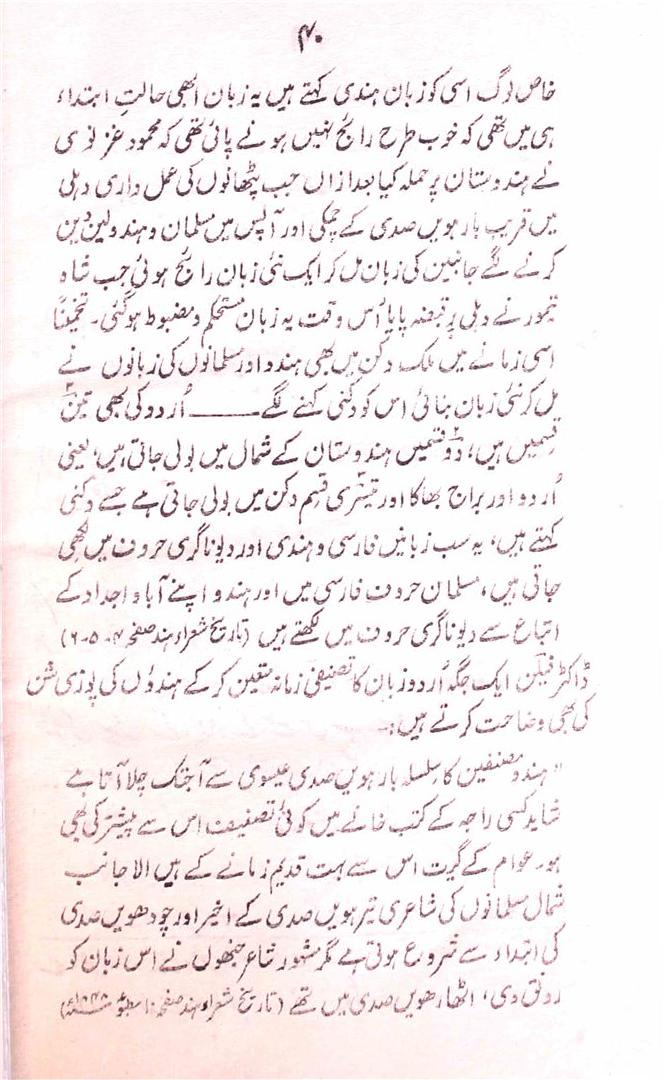 ۴۰
خاص لوگ اسی کو زبان ہندی کہتے ہیں یہ زبان ابھی حالتِ ابتداء
ہی میں تھی کہ خوب طرح رائج نہیں ہونے پائی تھی کہ محمود غزنوی
نے ہندوستان پر حملہ کیا بعد ازاں جب پٹھانوں کی عمل داری دہلی
میں قریب بارہویں صدی کے چمکی اور آپس میں مسلمان و ہندو لین دین
کرنے لگے جانبین کی زبان مل کر ایک نئی زبان رائج ہوئی جب شاہ
تیمور نے دہلی پر قبضہ پایا اُس وقت یہ زبان مستحکم و مضبوط ہوگئی۔ تخمیناً
اسی زمانے میں ملک دکن میں بھی ہندو اور مسلمانوں کی زبانوں نے
مل کر نئی زبان بنائی اس کو دکنی کہنے لگے ــــــ اُردو کی بھی تین
قسمیں ہیں، دو قسمیں ہندوستان کے شمال میں بولی جاتی ہیں، یعنی
اُردو اور براج بھاکا اور تیسری قسم دکن میں بولی جاتی ہے جسے دکنی
کہتے ہیں، یہ سب زبانیں فارسی و ہندی اور دیوناگری حروف میں لکھی
جاتی ہیں، مسلمان حروف فارسی میں اور ہندو اپنے آبا و اجداد کے
اتباع سے دیوناگری حروف میں لکھتے ہیں (تاریخ شعراء ہند صفحہ ۴-۵-۶)
ڈاکٹر فیلن ایک جگہ اُردو زبان کا تصنیفی زمانہ متعین کرکے ہندوؤں کی پوزیشن
کی بھی وضاحت کرتے ہیں:۔
"ہندو مصنفین کا سلسلہ بارہویں صدی عیسوی سے آجتک چلا آتا ہے
شاید کسی راجہ کے کتب خانے میں کوئی تصنیف اس سے پیشتر کی بھی
ہو۔ عوام کے گیت اس سے بہت قدیم زمانے کے ہیں الا جانب
شمال مسلمانوں کی شاعری تیرہویں صدی کے اخیر اور چودھویں صدی
کی ابتداء سے شروع ہوتی ہے مگر مشہور شاعر جنھوں نے اس زبان کو
رونق دی، اٹھارھویں صدی میں تھے (تاریخ شعراء ہند صفحہ ۱۰ مطبوعہ ۱۸۴۸ء)